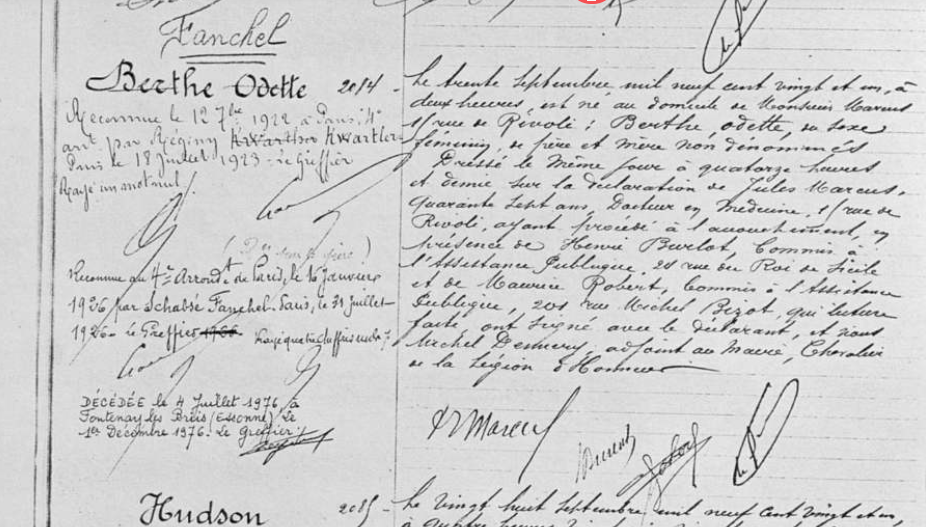 Fanchel
Berthe Odette 2084
Reconnue le 12 7bre 1922 à Paris, 4e
arrt. par Régina Kwartler Kwartler
Paris le 18 Juillet 1923 - Le Greffier
Rayé un mot nul.
Reconnue au 4e Arrondt de Paris, le 16 Janvier
1926 par Schabsé Fanchel. Paris, le 31 Juillet
1926 - Le Greffier 1966 Rayé quatre chiffres nuls
DÉCÉDÉE le 4 Juillet 1976 à
Fontenay les Briis (Essonne) Le
1er Décembre 1976. Le Greffier:
Le trente Septembre mil neuf cent vingt et un, à
deux heures, est né au domicile de Monsieur Marcus
1 rue de Rivoli : Berthe, Odette, du sexe
féminin, de père et mère non dénommés
Dressé le même jour à quatorze heures
et demie sur la déclaration de Jules Marcus,
quarante sept ans, Docteur en Médecine, 1 rue de
Rivoli, ayant procédé à l'accouchement, en
présence de Henri Burlot, Commis à
l'Assistance Publique, 28 rue du Roi de Sicile
et de Maurice Robert, Commis à l'Assistance
Publique, 201 rue Michel Bizot, qui lecture
faite, ont signé avec le déclarant, et nous
Michel adjoint au Maire, Chevalier
de la Légion d'Honneur
Dr Marcus
Hudson 2085
Le vingt huit Septembre mil neuf cent vingt et un,